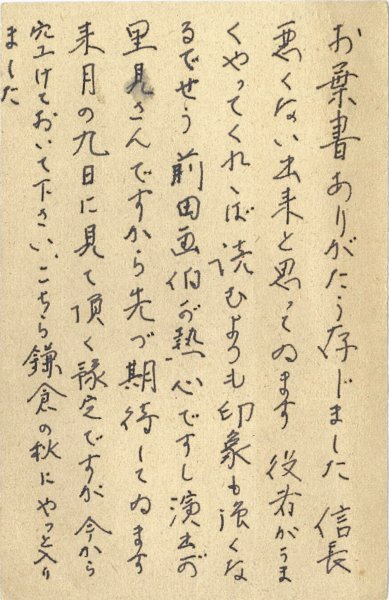 お葉書ありがたう存じました 信長
悪くない出来と思ってゐます 役者がうま
くやってくれゝば読むよりも印象も強くな
るでせう 前田画伯が熱心ですし演出が
里見さんですから先づ期待してゐます
来月の九日に見て頂く豫定ですが 今から
空けておいて下さい、こちら鎌倉の秋にやっと入り
ました